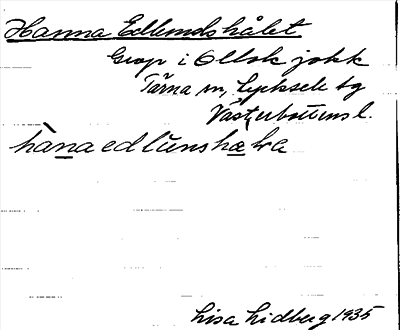 Hanna Edlundshålet
Grop i Ollok jokk
Tärna sn, Lycksele tg
Västerbottens l.
hànaedlunshæla
Lisa Lidberg 1935